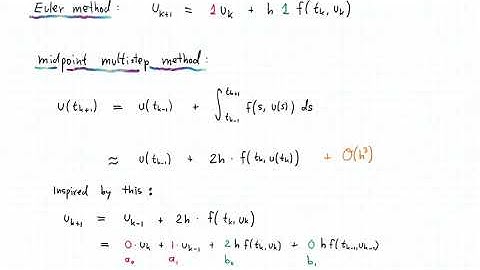 Euler method: u_{k+1} = 1 u_k + h 1 f(t_k, u_k)
midpoint multistep method:
u(t_{k+1}) = u(t_{k-1}) + ∫_{t_{k-1}}^{t_{k+1}} f(s, u(s)) ds
≈ u(t_{k-1}) + 2h · f(t_k, u(t_k)) + O(h³)
Inspired by this:
u_{k+1} = u_{k-1} + 2h · f(t_k, u_k)
= 0·u_k + 1·u_{k-1} + 2 h f(t_k, u_k) + 0 h f(t_{k-1}, u_{k-1})
a₀ a₁ b₀ b₁